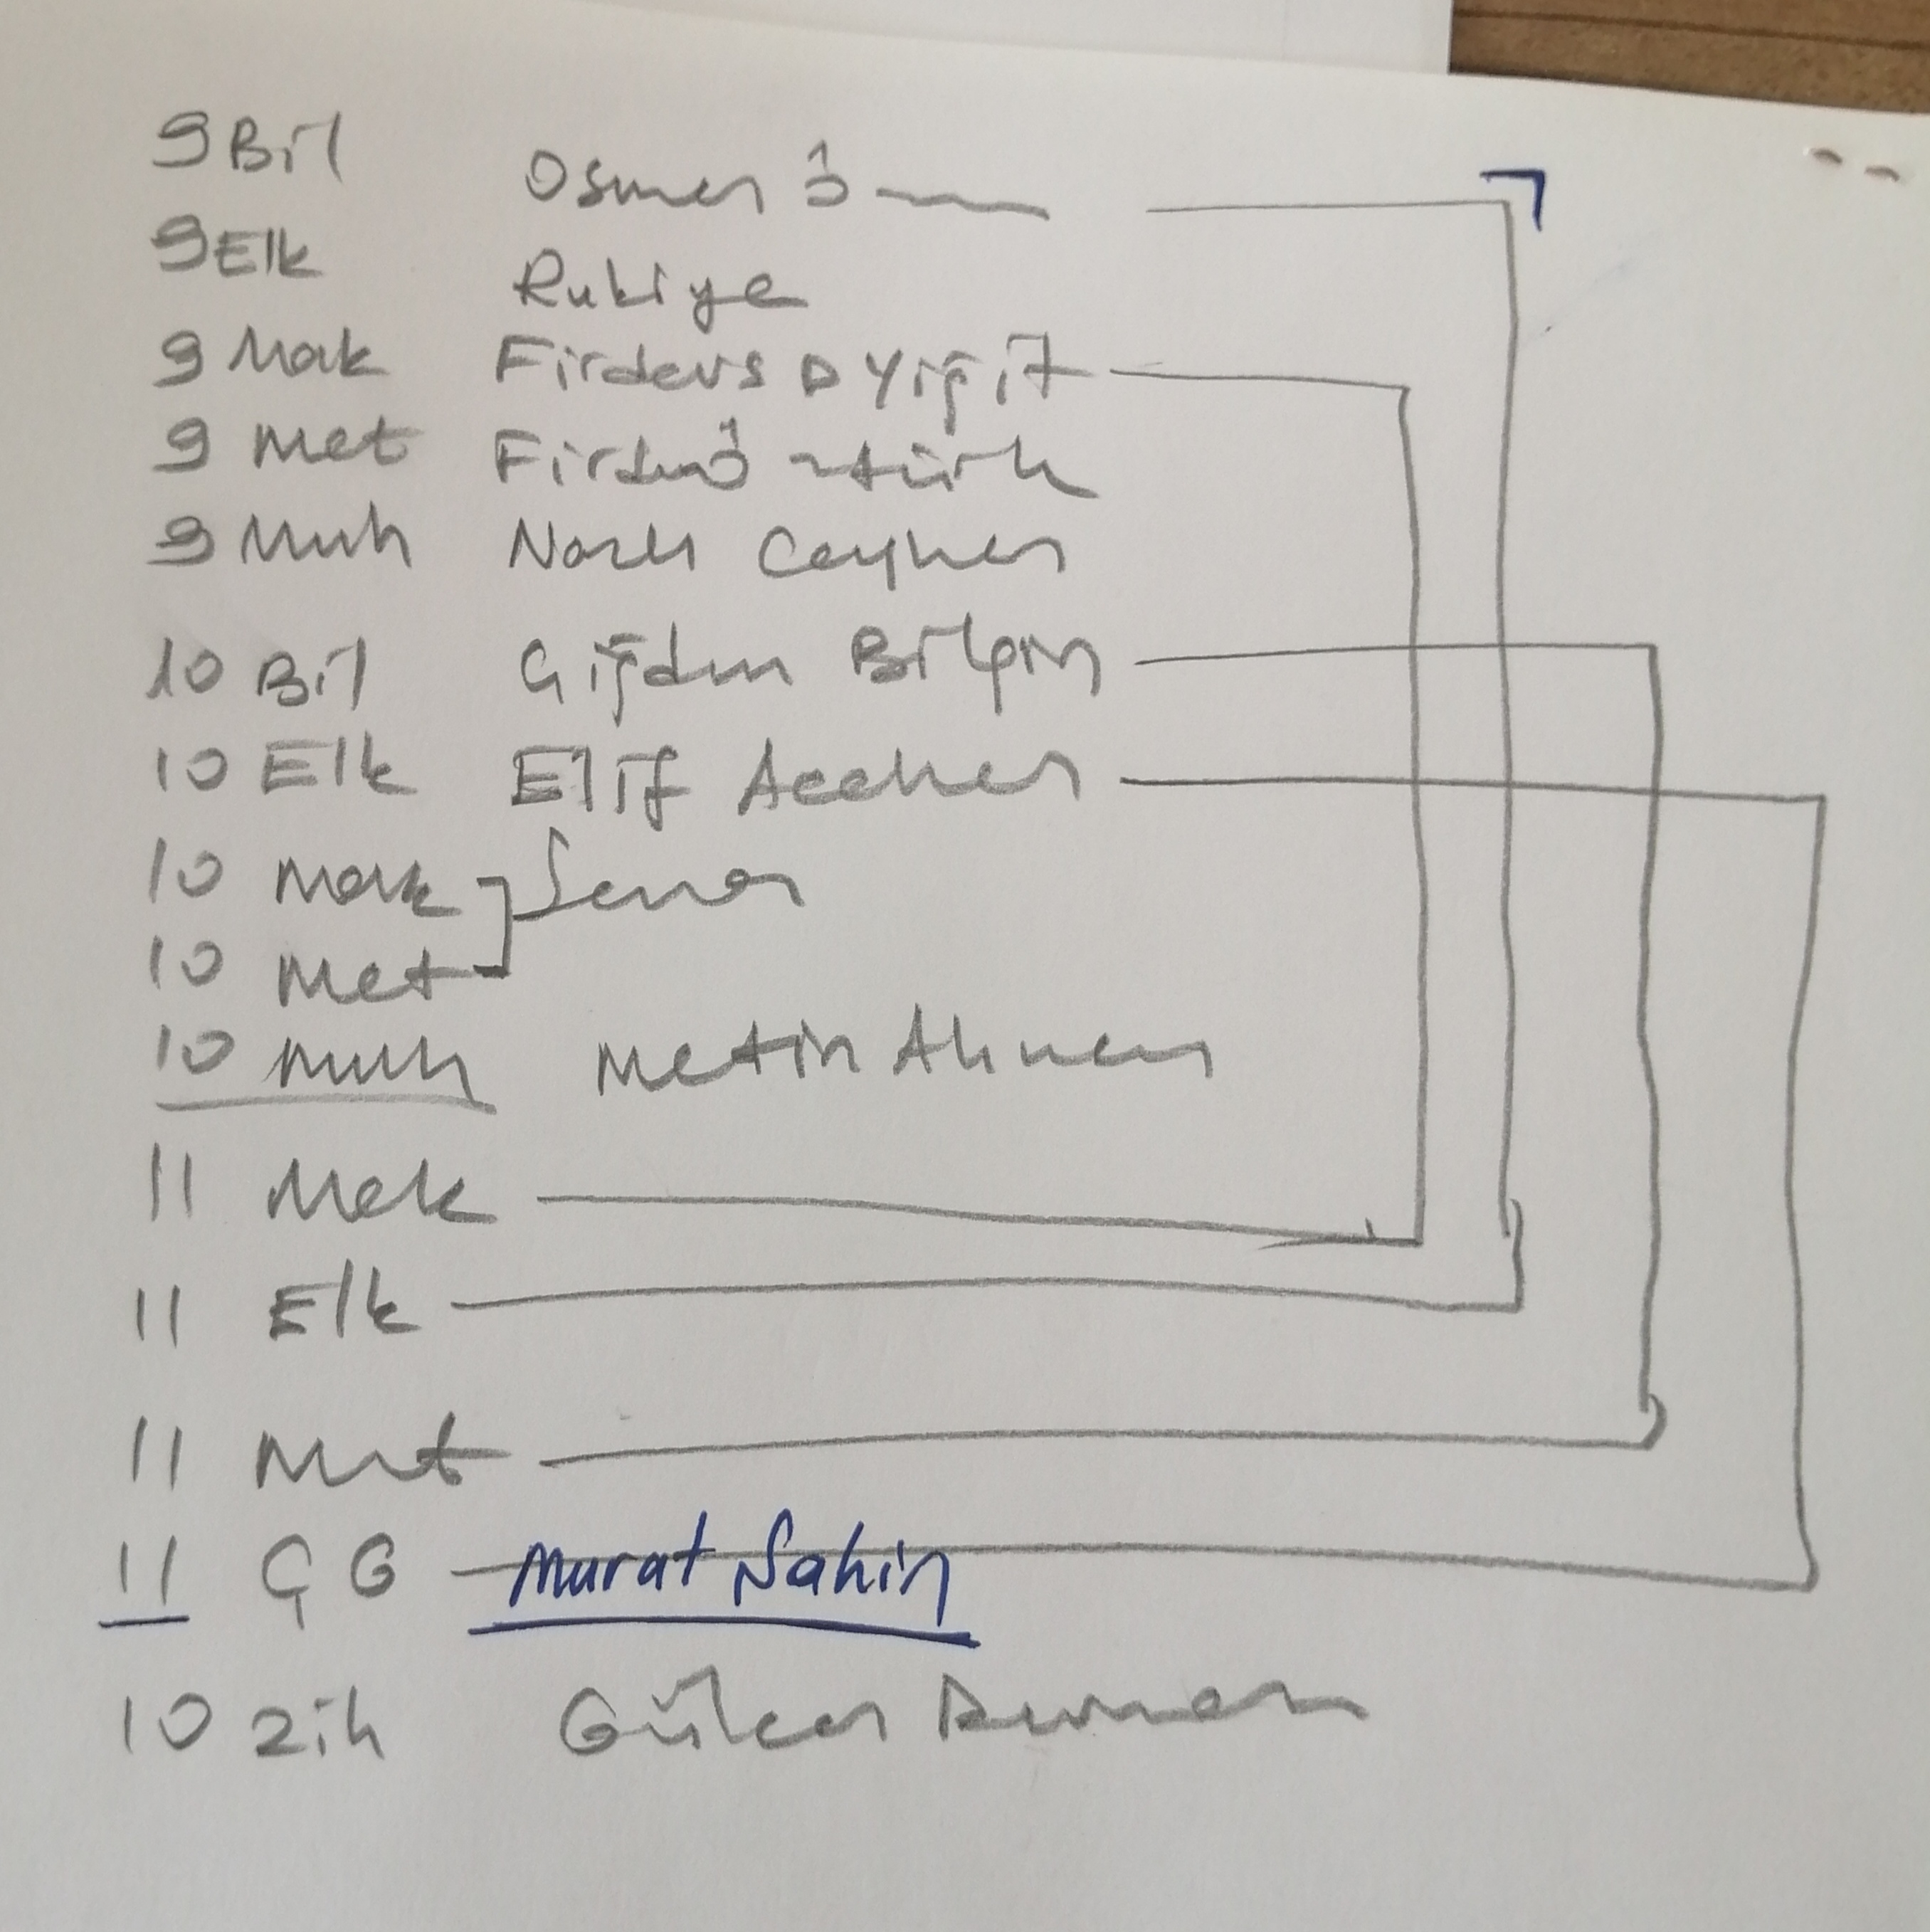 9 Bil Osman Ö
9 Elk Rukiye
9 Mak Firdevs D Yiğit
9 Met Firdevs Öztürk
9 Muh Nazlı Ceyhan
10 Bil Çiğdem Bilgin
10 Elk Elif Accehan
10 Mak Sena
10 Met
10 Muh Metin Ahmen
11 Mak
11 Elk
11 Met
11 ÇG Murat Şahin
10 Zih Gülcan Duman